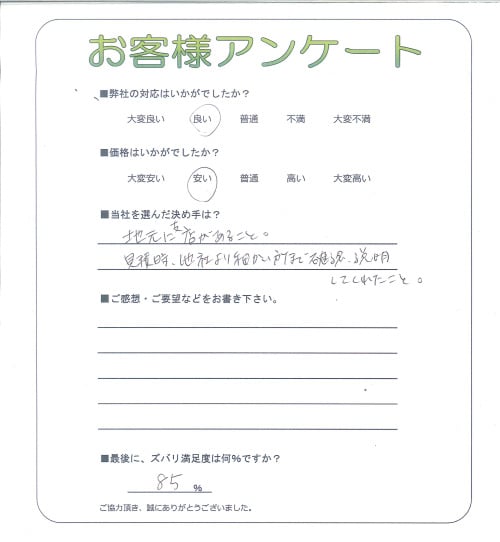 お客様アンケート
■弊社の対応はいかがでしたか？
大変良い 良い 普通 不満 大変不満
■価格はいかがでしたか？
大変安い 安い 普通 高い 大変高い
■当社を選んだ決め手は？
地元に支店があること。
見積時、他社より細かい所まで確認、説明
してくれたこと。
■ご感想・ご要望などをお書き下さい。
■最後に、ズバリ満足度は何％ですか？
85 %
ご協力頂き、誠にありがとうございました。